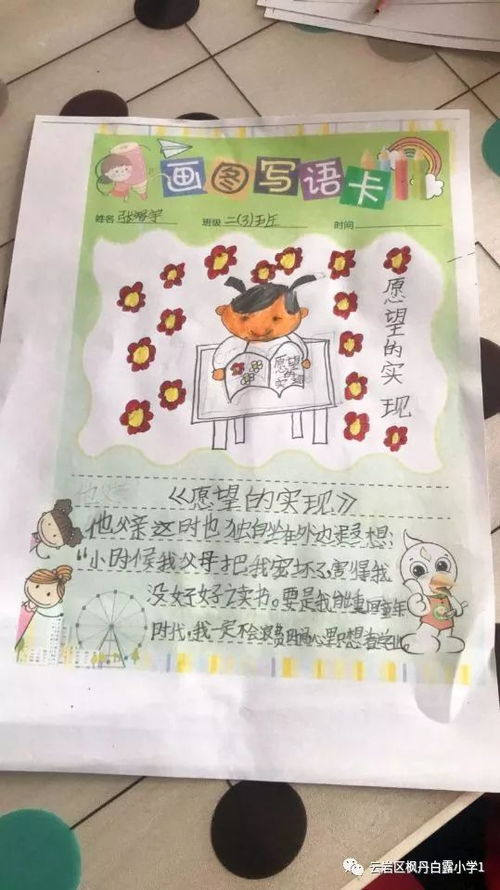 画图写语卡
姓名 张 班级 二(3)班 时间
愿望的实现
愿望的实
《愿望的实现》
他父亲这时也独自坐在外边想：
“小时候我父母把我宠坏了，害得我
没好好读书。要是我能重回童年
时代，我一定不会浪费时间心里只想着学
云岩区枫丹白露小学1